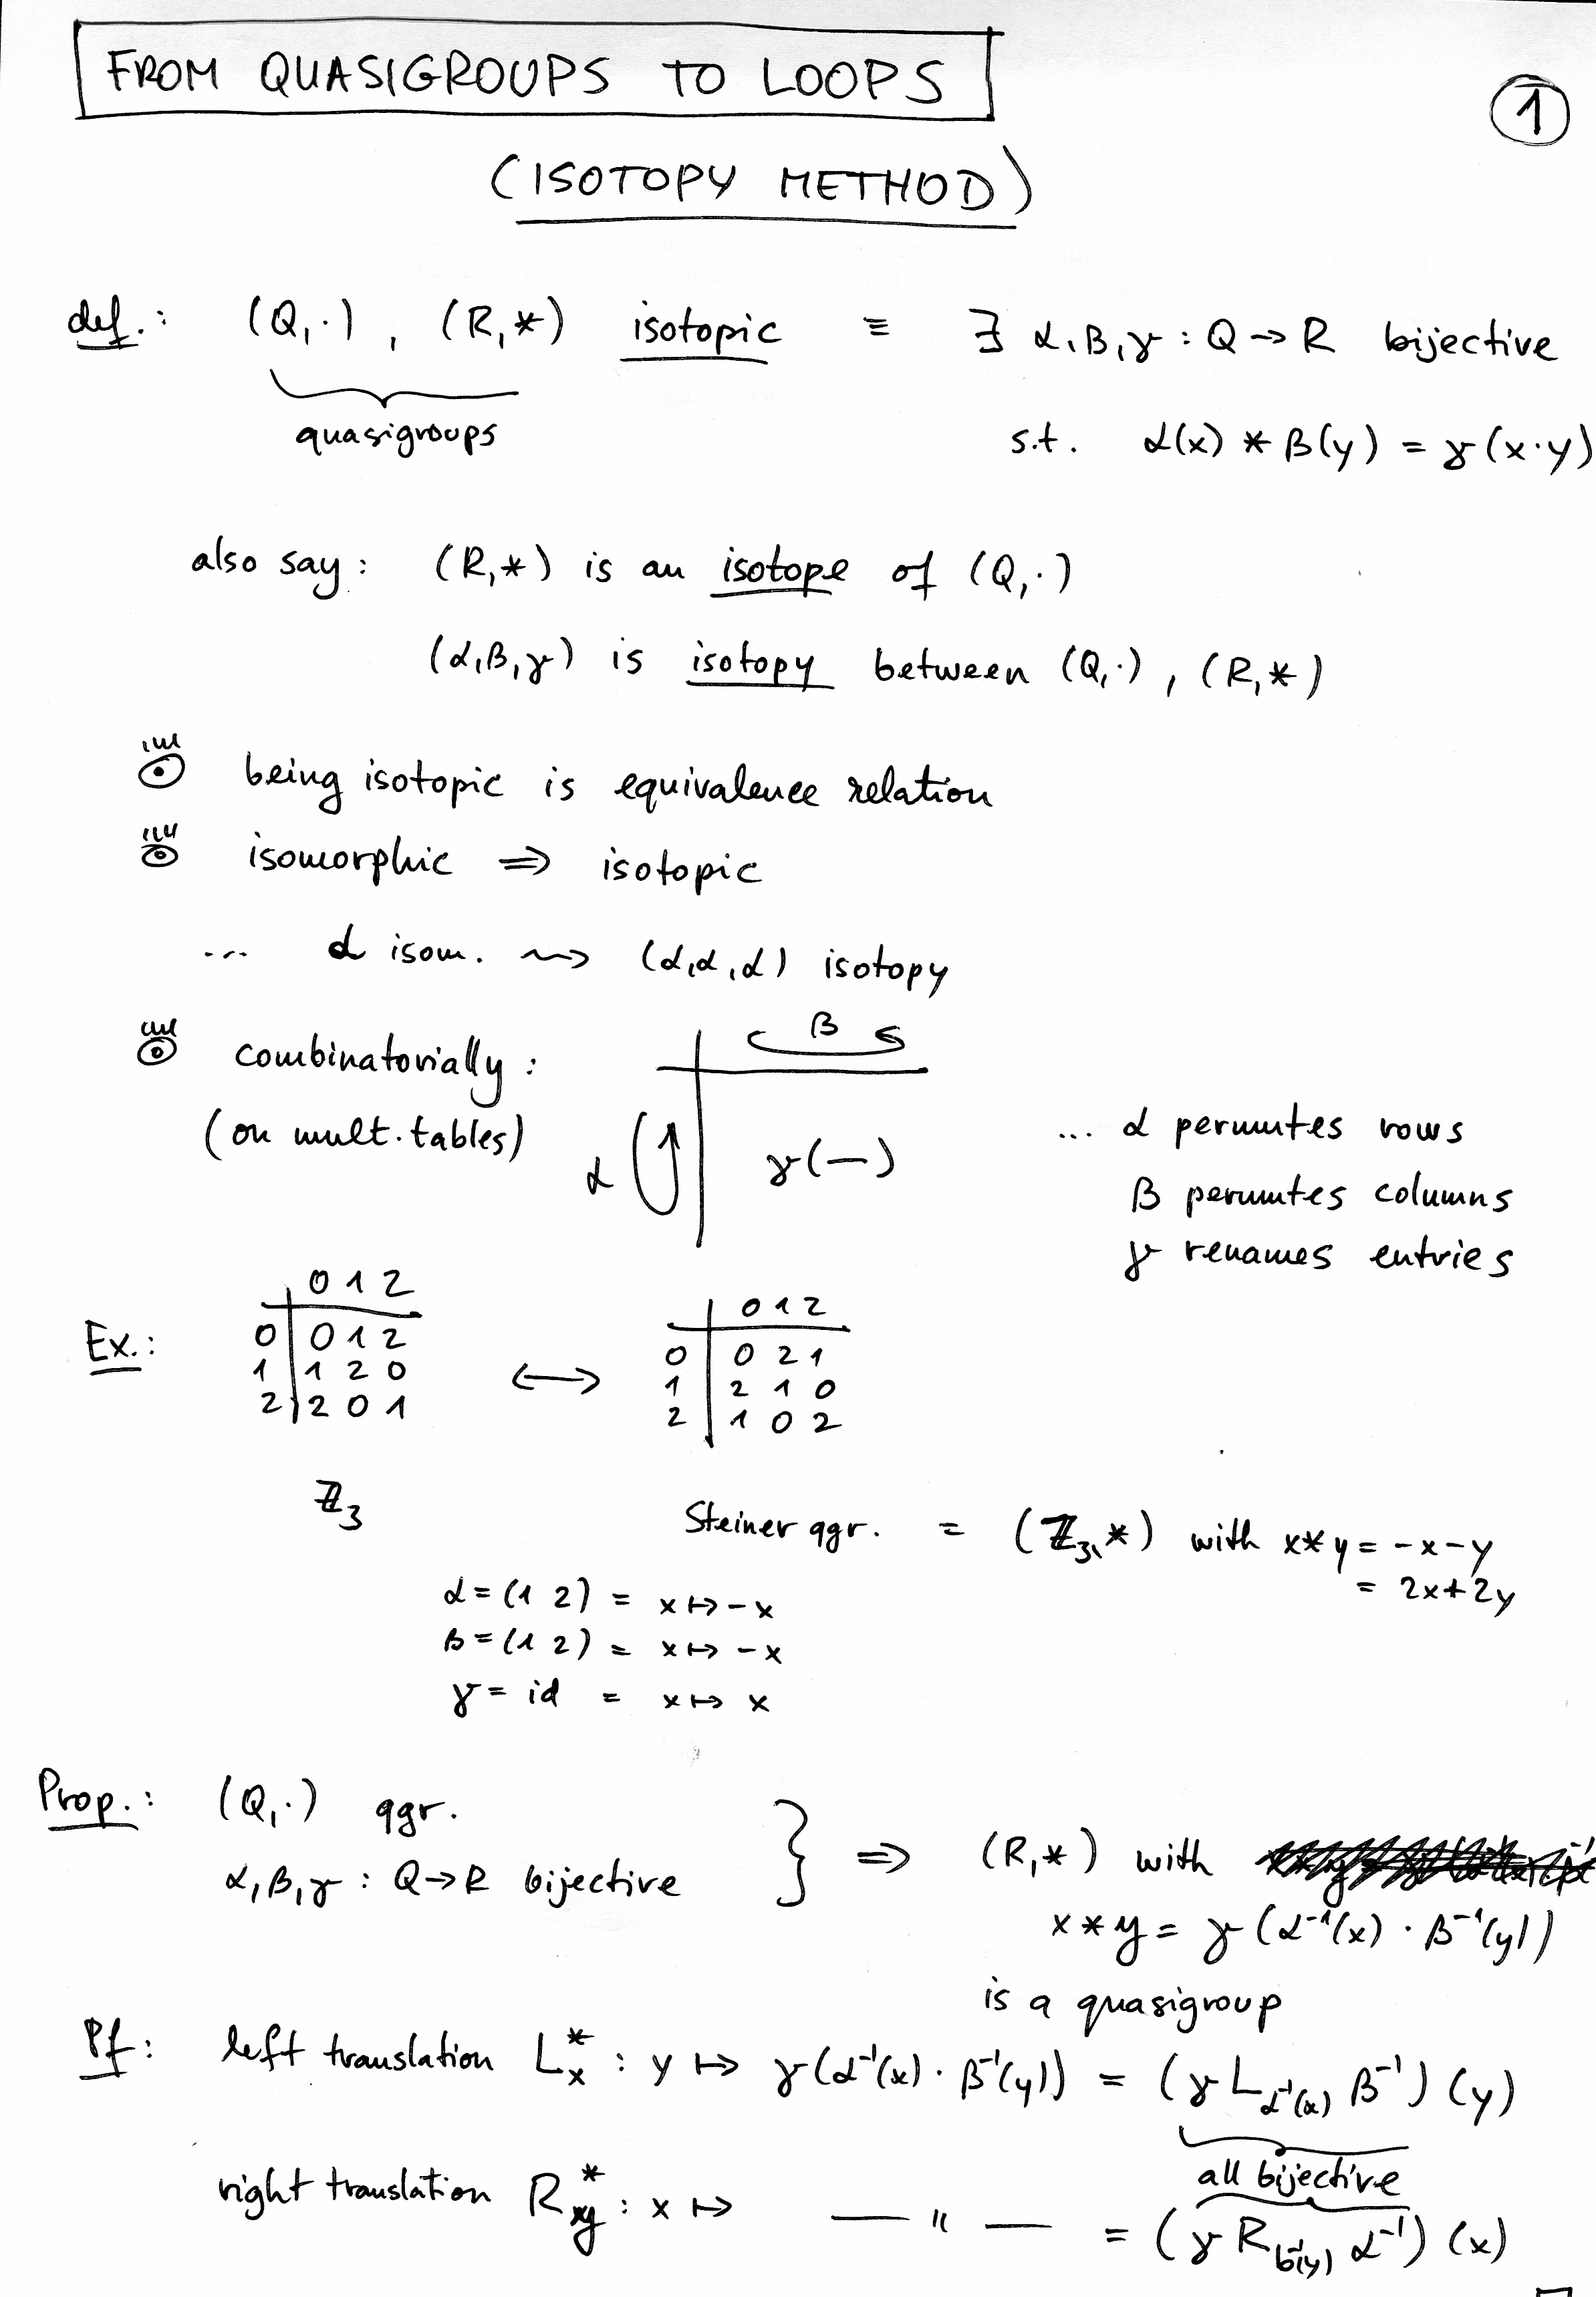 FROM QUASIGROUPS TO LOOPS
1
(ISOTOPY METHOD)
def.: (Q,·), (R,*) isotopic ≡ ∃ α,β,γ : Q → R bijective
quasigroups
s.t. α(x) * β(y) = γ(x·y)
also say: (R,*) is an isotope of (Q,·)
(α,β,γ) is isotopy between (Q,·), (R,*)
being isotopic is equivalence relation
isomorphic ⇒ isotopic
... α isom. ⇝ (α,α,α) isotopy
combinatorially:
(on mult. tables)
β
α
γ(—)
... α permutes rows
β permutes columns
γ renames entries
Ex.:
0 1 2
0 | 0 1 2
1 | 1 2 0
2 | 2 0 1
⟷
0 1 2
0 | 0 2 1
1 | 2 1 0
2 | 1 0 2
ℤ₃
Steiner qgr. = (ℤ₃,*) with x*y = -x-y
= 2x+2y
α = (1 2) = x ↦ -x
β = (1 2) = x ↦ -x
γ = id = x ↦ x
Prop.: (Q,·) qgr.
α,β,γ : Q→R bijective } ⇒ (R,*) with
x*y = γ(α⁻¹(x) · β⁻¹(y))
is a quasigroup
Pf: left translation L*ₓ : y ↦ γ(α⁻¹(x) · β⁻¹(y)) = (γ L_α⁻¹(x) β⁻¹)(y)
all bijective
right translation R*_y : x ↦ — " — = (γ R_β⁻¹(y) α⁻¹)(x)